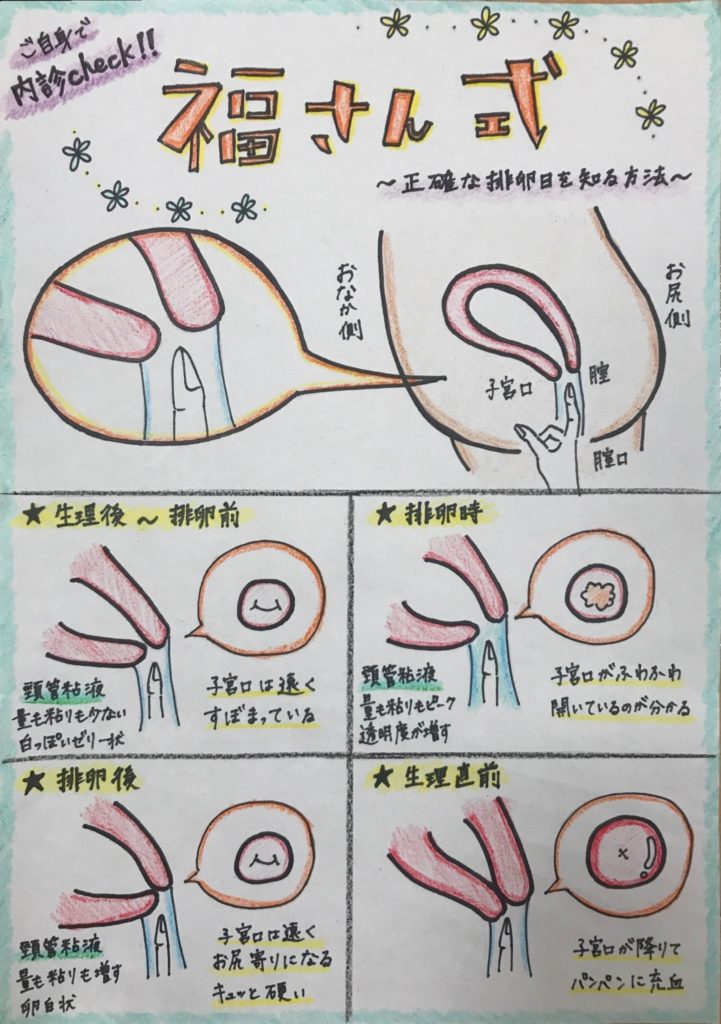 ご自身で
内診check!!
福さん式
～正確な排卵日を知る方法～
おなか側
お尻側
子宮口
膣
膣口
★生理後～排卵前
頸管粘液
量も粘りも少ない
白っぽいゼリー状
子宮口は遠く
すぼまっている
★排卵時
頸管粘液
量も粘りもピーク
透明度が増す
子宮口がふわふわ
開いているのが分かる
★排卵後
頸管粘液
量も粘りも増す
卵白状
子宮口は遠く
お尻寄りになる
キュッと硬い
★生理直前
子宮口が降りて
パンパンに充血